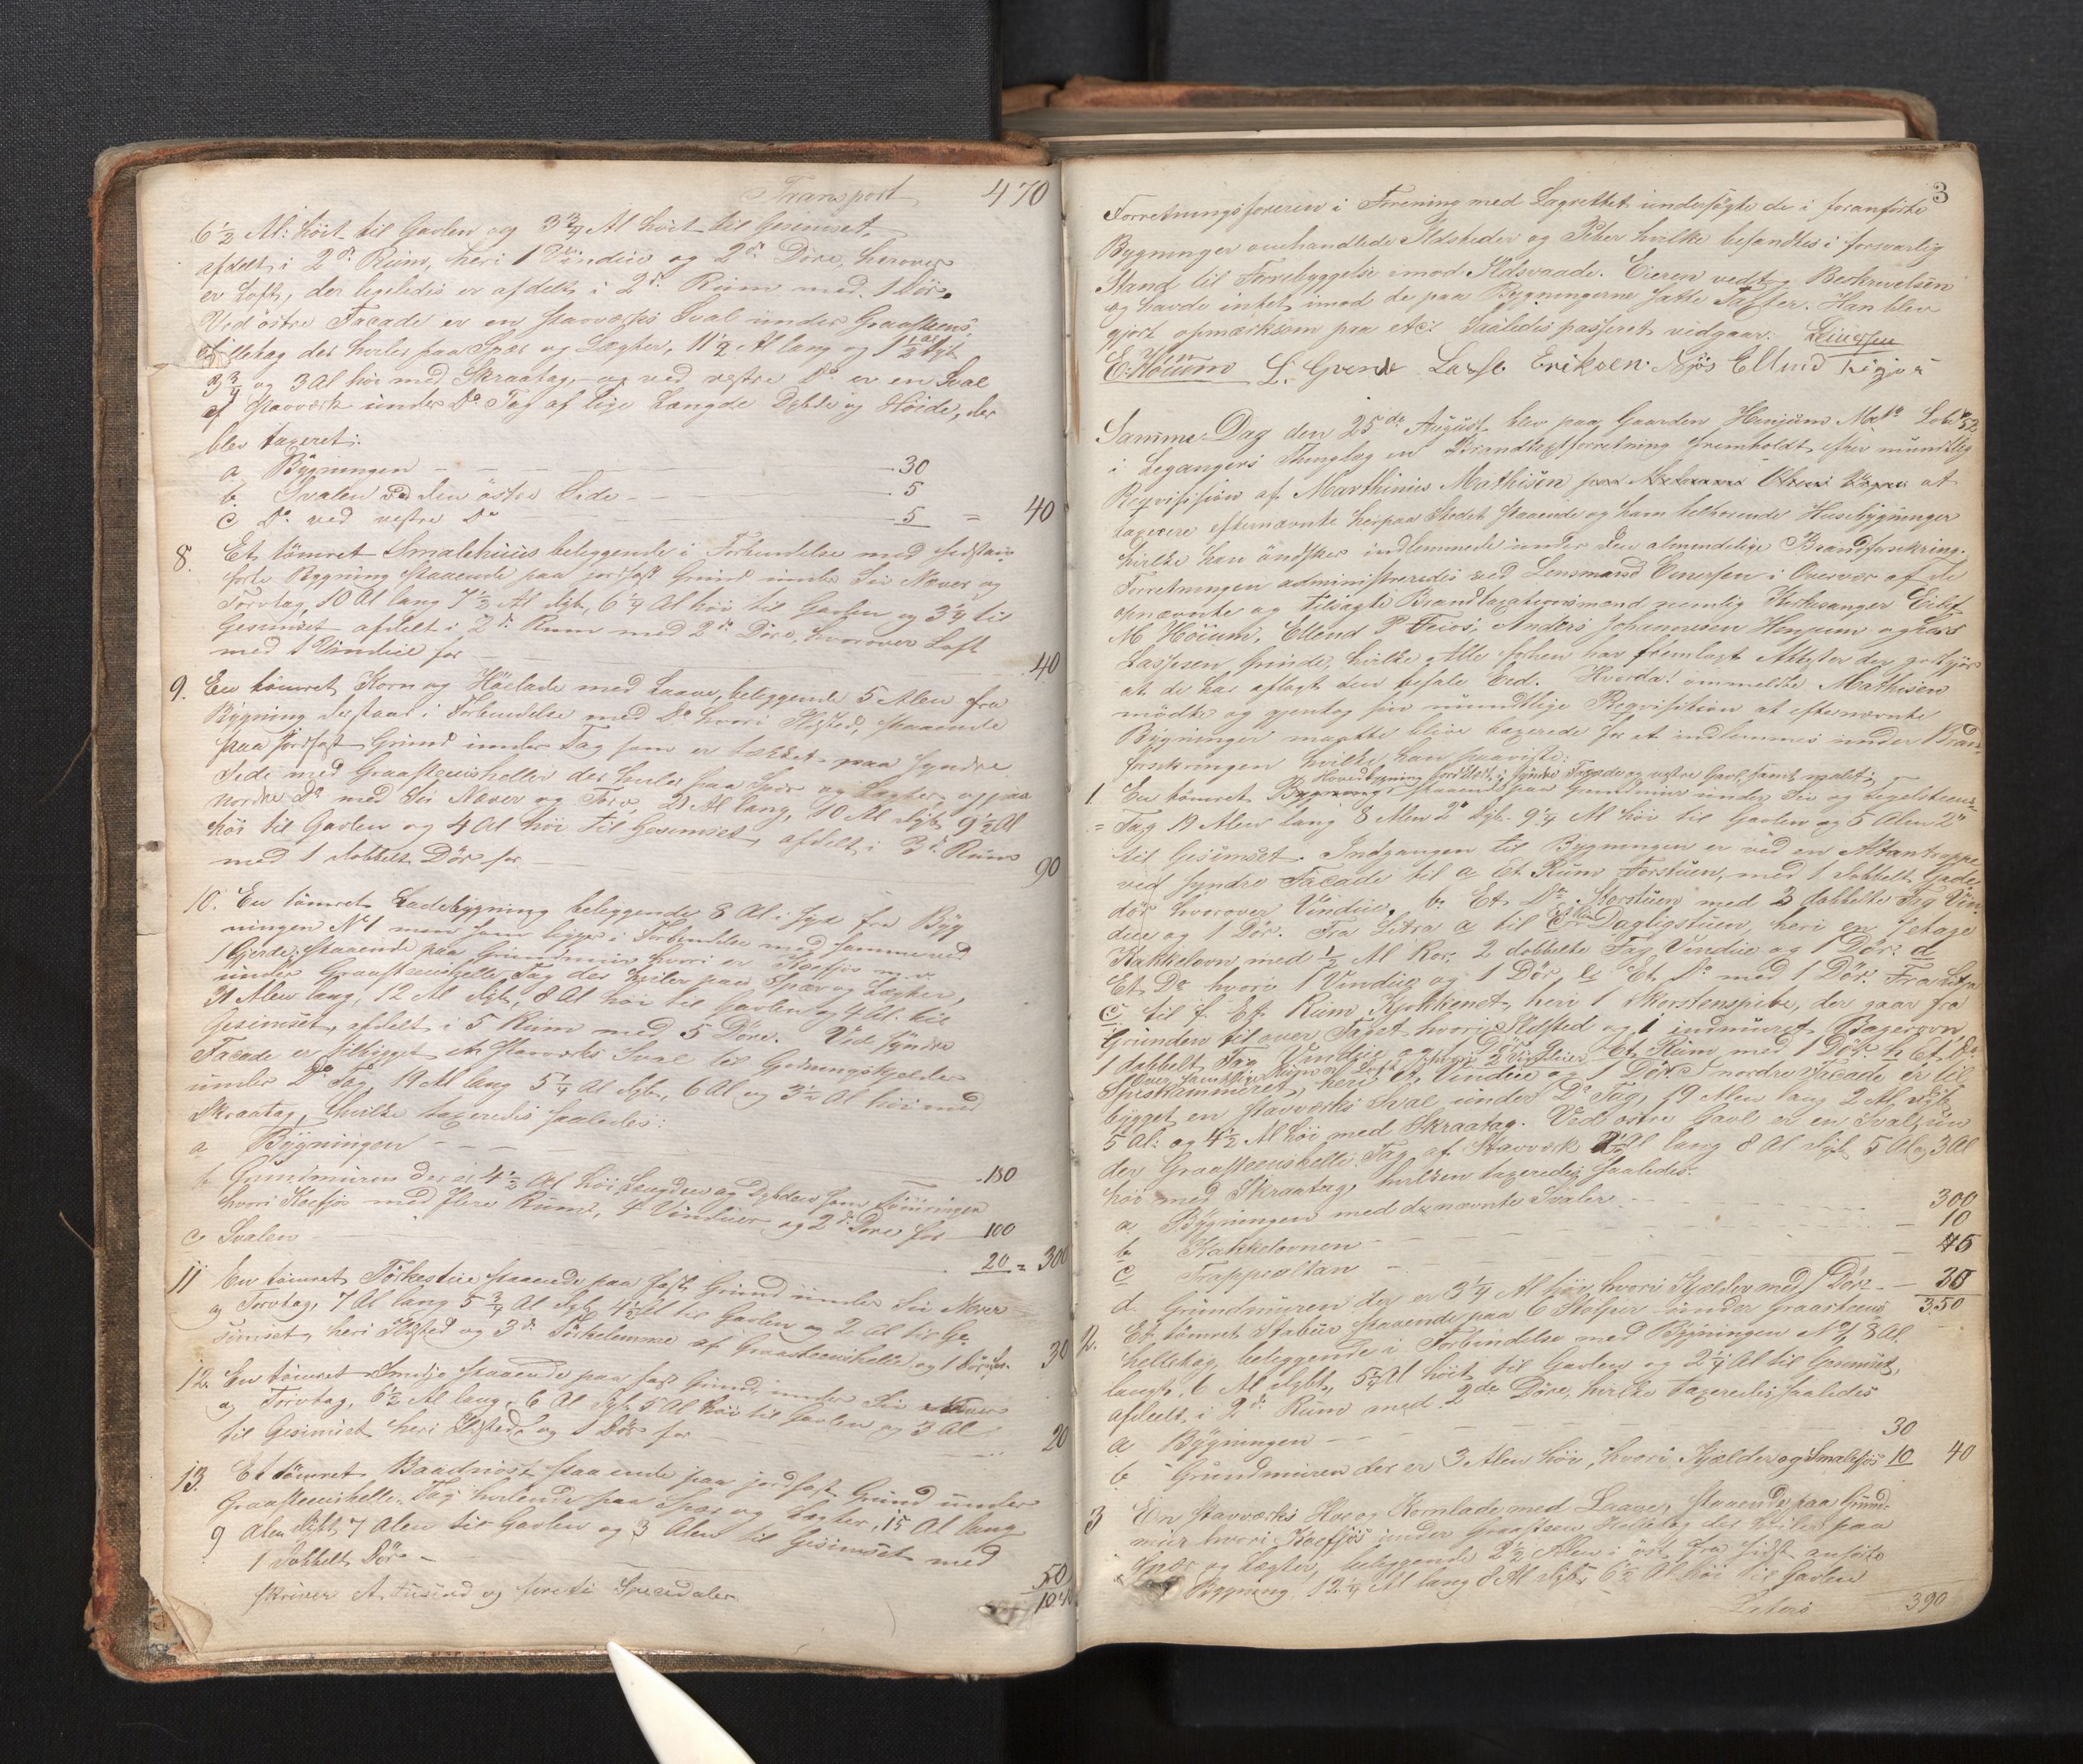 Transport 470
6 1/2 Al: höit til Gavlen og 3 3/4 Al höit til Gesimset,
afdelt i 2de Rum, heri 1 Vindue og 2de Döre, herover
er Loft, der ligeledes er afdelt i 2de Rum med 1 Dör.
Ved östre Facade er en stavværks Sval under Graasteens
helletag der hviler paa Spær og Lægter, 11 1/2 Al lang og 1 1/2 Al dyb
3 3/4 og 3 Al höi med Skraatag, og ved vestre Do er en Sval
af stavværk under Do Tag af lige Længde Dybde og Höide, der
blev taxeret:
a Bygningen 30
b. Svalen ved den östre Side 5
c Do ved vestre Do 5 = 40
8. Et tömret Smalehuus beliggende i Forbindelse med sidstan-
förte Bygning staaende paa jordfast Grund under Sir Næver og
Torvtag, 10 Al lang 7 1/2 Al dyb, 6 1/4 Al höi til Gavlen og 3 1/4 til
Gesimset afdelt i 2de Rum med 2de Döre, hvorover Loft
med 1 Vindue for 40
9. En tömret Korn og Höelade med Laave, beliggende 5 Alen fra
Bygning der staar i Forbindelse med Do hvori Ildsted, staaende
paa jordfast Grund under Tag som er tækket paa syndre
Side med Graasteensheller der hviler paa Spær og Lægter, og paa
nordre Do med Sir Næver og Torv, 21 Al lang, 10 Al dyb 9 1/2 Al
höi til Gavlen og 4 Al höi til Gesimset, afdelt i 3de Rum
med 1 dobbelt Dör for 90
10. En tömret Ladebygning beliggende 8 Al i Syd fra Byg
ningen No 1 men som ligger i Forbindelse med samme ved
1 Gjerde, staaende paa Grundmuur hvori er Koefjös m.v.
under Graasteenshelle Tag der hviler paa Spær og Lægter,
31 Alen lang, 12 Al dyb, 8 Al höi til Gavlen og 4 Al: til
Gesimset, afdelt i 5 Rum med 5 Döre. Ved syndre
Facade er tilbygget en stavværks Sval til Gjödningskjelder
under Do Tag, 19 Al lang 5 1/4 Al dyb, 6 Al og 3 1/2 Al höi med
Skraatag, hvilke taxeredes saaledes:
a Bygningen 180
b Grundmuren der er 4 1/2 Al höi, Længden og Dybden som Tömringen
hvori Koefjös med flere Rum, 4 Vinduer og 2de Döre for 100
c Svalen 20 = 300
11 En tömret Törkestue staaende paa fast Grund under Sir Næver
og Torvtag, 7 Al lang 5 3/4 Al dyb 4 1/2 Al til Gavlen og 2 Al til Ge-
simset, heri Ildsted og 3de Törkelemme af Graasteenshelle og 1 Dör for 30
12. En tömret Smidje staaende paa fast Grund, under Sir Næver
og Torvtag, 6 1/2 Al lang, 6 Al dyb 5 Al höi til Gavlen og 3 Al
til Gesimset heri Ildsted og 1 Dör for 20
13. Et tömret Baadnöst staaende paa jordfast Grund under
Graasteenshelle Tag hvilende paa Spær og Lægter, 15 Al lang
9 Alen dybt 7 Alen til Gavlen og 3 Alen til Gesimset med
1 dobbelt Dör 50
skriver Et tusind og förti Speciedaler 1040
3
Forretningsforeren i Forening med Lagrettet undersögte de i foranförte
Bygninger omhandlede Ildsteder og Piber hvilke befandtes i forsvarlig
Stand til Forebyggelse imod Ildsvaade. Eieren vedtog Beskrivelsen
og havde intet imod de paa Bygningerne satte Taxter. Han blev
gjort opmærksom paa etc: Saaledes passeret vidgaar: Einersen
E. Höium L. Grinde Lasse Eriksen Njös Ellend
Samme Dag den 25de August blev paa Gaarden Henjum Mat No Lob No 52
i Leganger Thinglag en Brandtaxtforretning fremholdt efter mundtlig
Reqvisition af Marthinus Mathisen at
taxere efternævnte herpaa Stedet staaende og ham tilhörende Huusebygninger
hvilke han öndsker indlemmede under den almindelige Brandforsikring.
Forretningen administreredes ved Lensmand Einersen i Overvær af de
opnævnte og tilsagte Brandtaxationsmænd nemlig Kirkesanger Eilef
M Höium, Ellend P Friös, Anders Johannesen Henjum og Lars
Lassesen Grinde, hvilke Alle forhen har fremlagt Attester der godtgjör
at de har aflagt den befale Eed. Hvorda! ommeldte Mathisen
mödte og gjentog sin mundtlige Reqvisition at efternævnte
Bygninger maatte blive taxerede for at indlemmes under Brand-
forsikringen hvilke han paaviste:
1. En tömret Hovedbygning bordklædt i syndre Facade og vestre Gavl samt malet;
staaende paa Grundmuur under Sir og tegelsteens-
Tag 19 Alen lang 8 Alen 2" dyb. 9 1/4 Al höi til Gavlen og 5 Alen 2"
til Gesimset. Indgangen til Bygningen er ved en Altantrappe
ved syndre Facade til a Et Rum Forstuen, med 1 dobbelt Gade-
dör hvorover Vindue, b. Et Do Storstuen med 3 dobbelte Fag Vin-
due og 1 Dör. Fra Litra a til c Dagligstuen, heri en 2 etage
Kakkelovn med 1/2 Al Rör, 2 dobbelte Fag Vindue og 1 Dör. d
Et Do hvori 1 Vindue og 1 Dör, e, Et Do med 1 Dör. Fra Litra
c til f. Et Rum Kjökkenet, heri 1 Skorstenspibe, der gaar fra
Grunden til over Taget hvori Ildsted og 1 indmuret Bagerovn
1 dobbelt Fag Vindue og 1 Dör g Et Rum med 1 Dör h Et Do
Spiskammeret, heri et Vindue og 1 Dör. I nordre Facade er til-
bygget en stavværks Sval under Do Tag, 19 Alen lang 2 Al dyb
5 Al: og 4 1/2 Al höi med Skraatag. Ved östre Gavl er en Sval un-
der Graasteenshelle Tag af Stavværk Al lang 8 Al dyb 5 Al og 3 Al
höi med Skraatag, hvilken taxeredes saaledes:
a Bygningen med de nævnte Svaler 300
b Kakkelovnen 10
c Trappealtan
d. Grundmuren der er 3 1/4 Al höi hvori Kjælder med 1 Dör
350
2. Et tömret Stabur staaende paa 6 Stolper under Graasteens
helletag, beliggende i Forbindelse med Bygningen No 1, 8 Al
langt, 6 Al dybt, 5 3/4 Al höit til Gavlen og 2 1/4 Al til Gesimset,
afdeelt i 2de Rum med 2de Döre, hvilke taxeredes saaledes
a Bygningen 30
b Grundmuren der er 3 Alen höi, hvori Kjælder og Smalefjös 10 40
3 En stavværks Hoe og Kornlade med Laave, staaende paa Grund-
muur hvori Koefjös under Graasteens Helletag der hviler paa
Spær og Lægter, beliggende 2 1/2 Alen i öst fra sidst anförte
Bygning, 12 1/4 Al lang 8 Al dyb 6 1/2 Al höi til Gavlen
Lateris 390